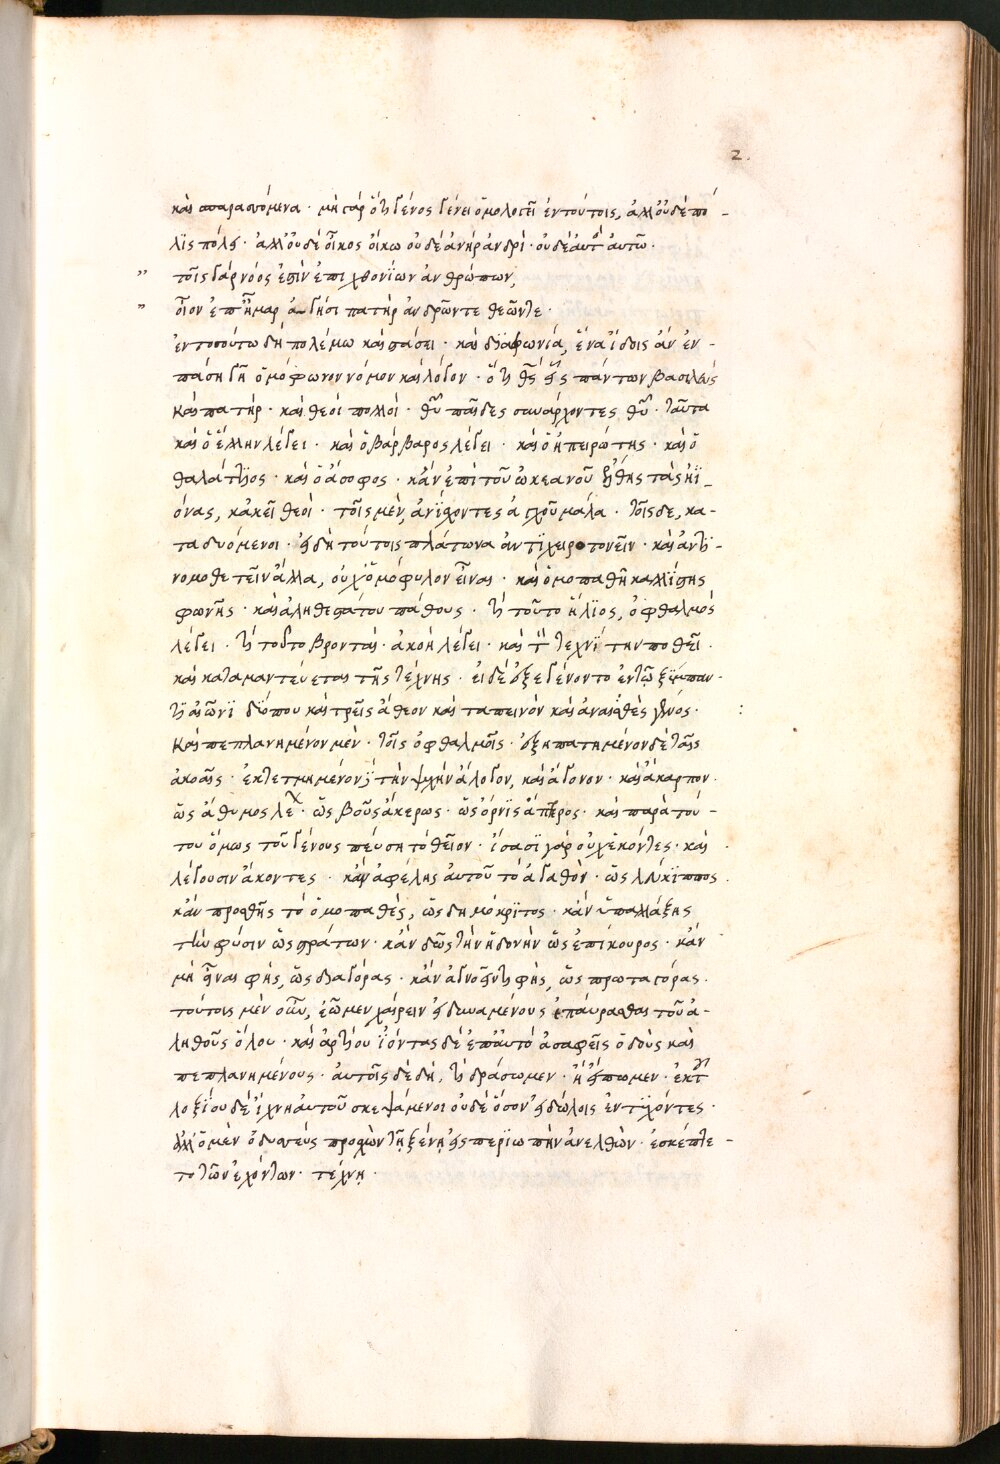 2.
καὶ σπαρασσόμενα · μὴ γὰρ ὅτι γένος γένει ὁμολογεῖ ἐν τούτοις, ἀλλ' οὐδὲ πό -
λϊς πόλει · ἀλλ' οὐδὲ οἶκος οἴκω οὐδὲ ἀνὴρ ἀνδρὶ · οὐδὲ αὐτὸς αὐτῶ ·
" τοῖς γὰρ νόος ἐστὶν ἐπιχθονίων ἀνθρώπων,
" οἷον ἐπ' ἦμαρ ἄγησι πατὴρ ἀνδρῶν τε θεῶν τε ·
ἐν τοσούτω δὴ πολέμω καὶ στάσει · καὶ διαφωνία, ἕνα ἴδοις ἂν ἐν -
πάση γῆ ὁμόφωνον νόμον καὶ λόγον · ὅτι θς εἷς πάντων βασιλεὺς
καὶ πατὴρ · καὶ θεοὶ πολλοὶ · θυ παῖδες συνάρχοντες θυ · ταῦτα
καὶ ὁ ἕλλην λέγει · καὶ ὁ βάρβαρος λέγει · καὶ ὁ ἠπειρώτης · καὶ ὁ
θαλάττιος · καὶ ὁ ἄσοφος · κἂν ἐπὶ τοῦ ὠκεανοῦ ἔλθης τὰς ἠϊ -
όνας, κἀκεῖ θεοὶ · τοῖς μὲν, ἀνίσχοντες ἀγχοῦ μάλα · τοῖς δε, κα -
ταδυόμενοι · εἰ δὴ τούτοις πλάτωνα ἀντιχειροτονεῖν · καὶ ἀντι -
νομοθετεῖν ἄλλα, οὐχ ὁμόφυλον εἶναι · καὶ ὁμοπαθῆ καλλίστης
φωνῆς · καὶ ἀληθεστάτου πάθους · τί τοῦτο ἥλιος, ὀφθαλμὸς
λέγει · τί τοῦτο βροντὰι · ἀκοὴ λέγει ·
καὶ καταμαντεύεται τῆς τέχνης · εἰ δὲ ἐξεγένοντο ἐν τῶ ξύμπαν -
τι αἰῶνι δύο που καὶ τρεῖς ἄθεον καὶ ταπεινὸν καὶ ἀναισθὲς γένος · :
καὶ πεπλανημένον μὲν · τοῖς ὀφθαλμοῖς · ἐξηπατημένον δὲ ταῖς
ἀκοαῖς · ἐκτετμημένον δὲ τὴν ψυχὴν ἄλογον, καὶ ἄγονον · καὶ ἄκαρπον ·
ὡς ἄθυμος λέων · ὡς βοῦς ἄκερως · ὡς ὄρνις ἄπτερος · καὶ παρὰ τού -
του ὅμως τοῦ γένους πεύση τὸ θεῖον · ἴσασϊ γὰρ οὐχ ἑκόντες · καὶ
λέγουσιν ἄκοντες · κἂν ἀφέλης αὐτοῦ τὸ ἀγαθὸν · ὡς λεύκιππος
κἂν προσθῆς τὸ ὁμοπαθὲς, ὡς δημόκριτος · κἂν ὑπαλλάξης
τὴν φύσιν ὡς στράτων · κἂν δῶς τὴν ἡδονὴν ὡς ἐπίκουρος · κἂν
μὴ εἶναι φῆς, ὡς διαγόρας · κἂν ἀγνοεῖν τι φῆς, ὡς πρωταγόρας ·
τούτοις μὲν οὖν, ἐῶμεν χαίρειν εἰ δυναμένους ἐπαύρασθαι τοῦ ἀ -
ληθοῦς ὅλου · καὶ ἀρτίου ἰόντας δὲ ἐπ' αὐτὸ ἀσαφεῖς ὁδοὺς καὶ
πεπλανημένους · αὐτοῖς δὲ δὴ, τί δράσωμεν · ἢ εἴπωμεν ·
λοξίου δὲ ἴχνη αὐτοῦ σκεψάμενοι οὐδὲ ὅσον εἰδώλοις ἐντυχόντες ·
ἀλλ' ὁ μὲν ὀδυσσεὺς προσχὼν τῆ ξένη εἰς περϊωπὴν ἀνελθὼν · ἐσκέπτε -
το τῶν ἐχόντων · τέχνη ·